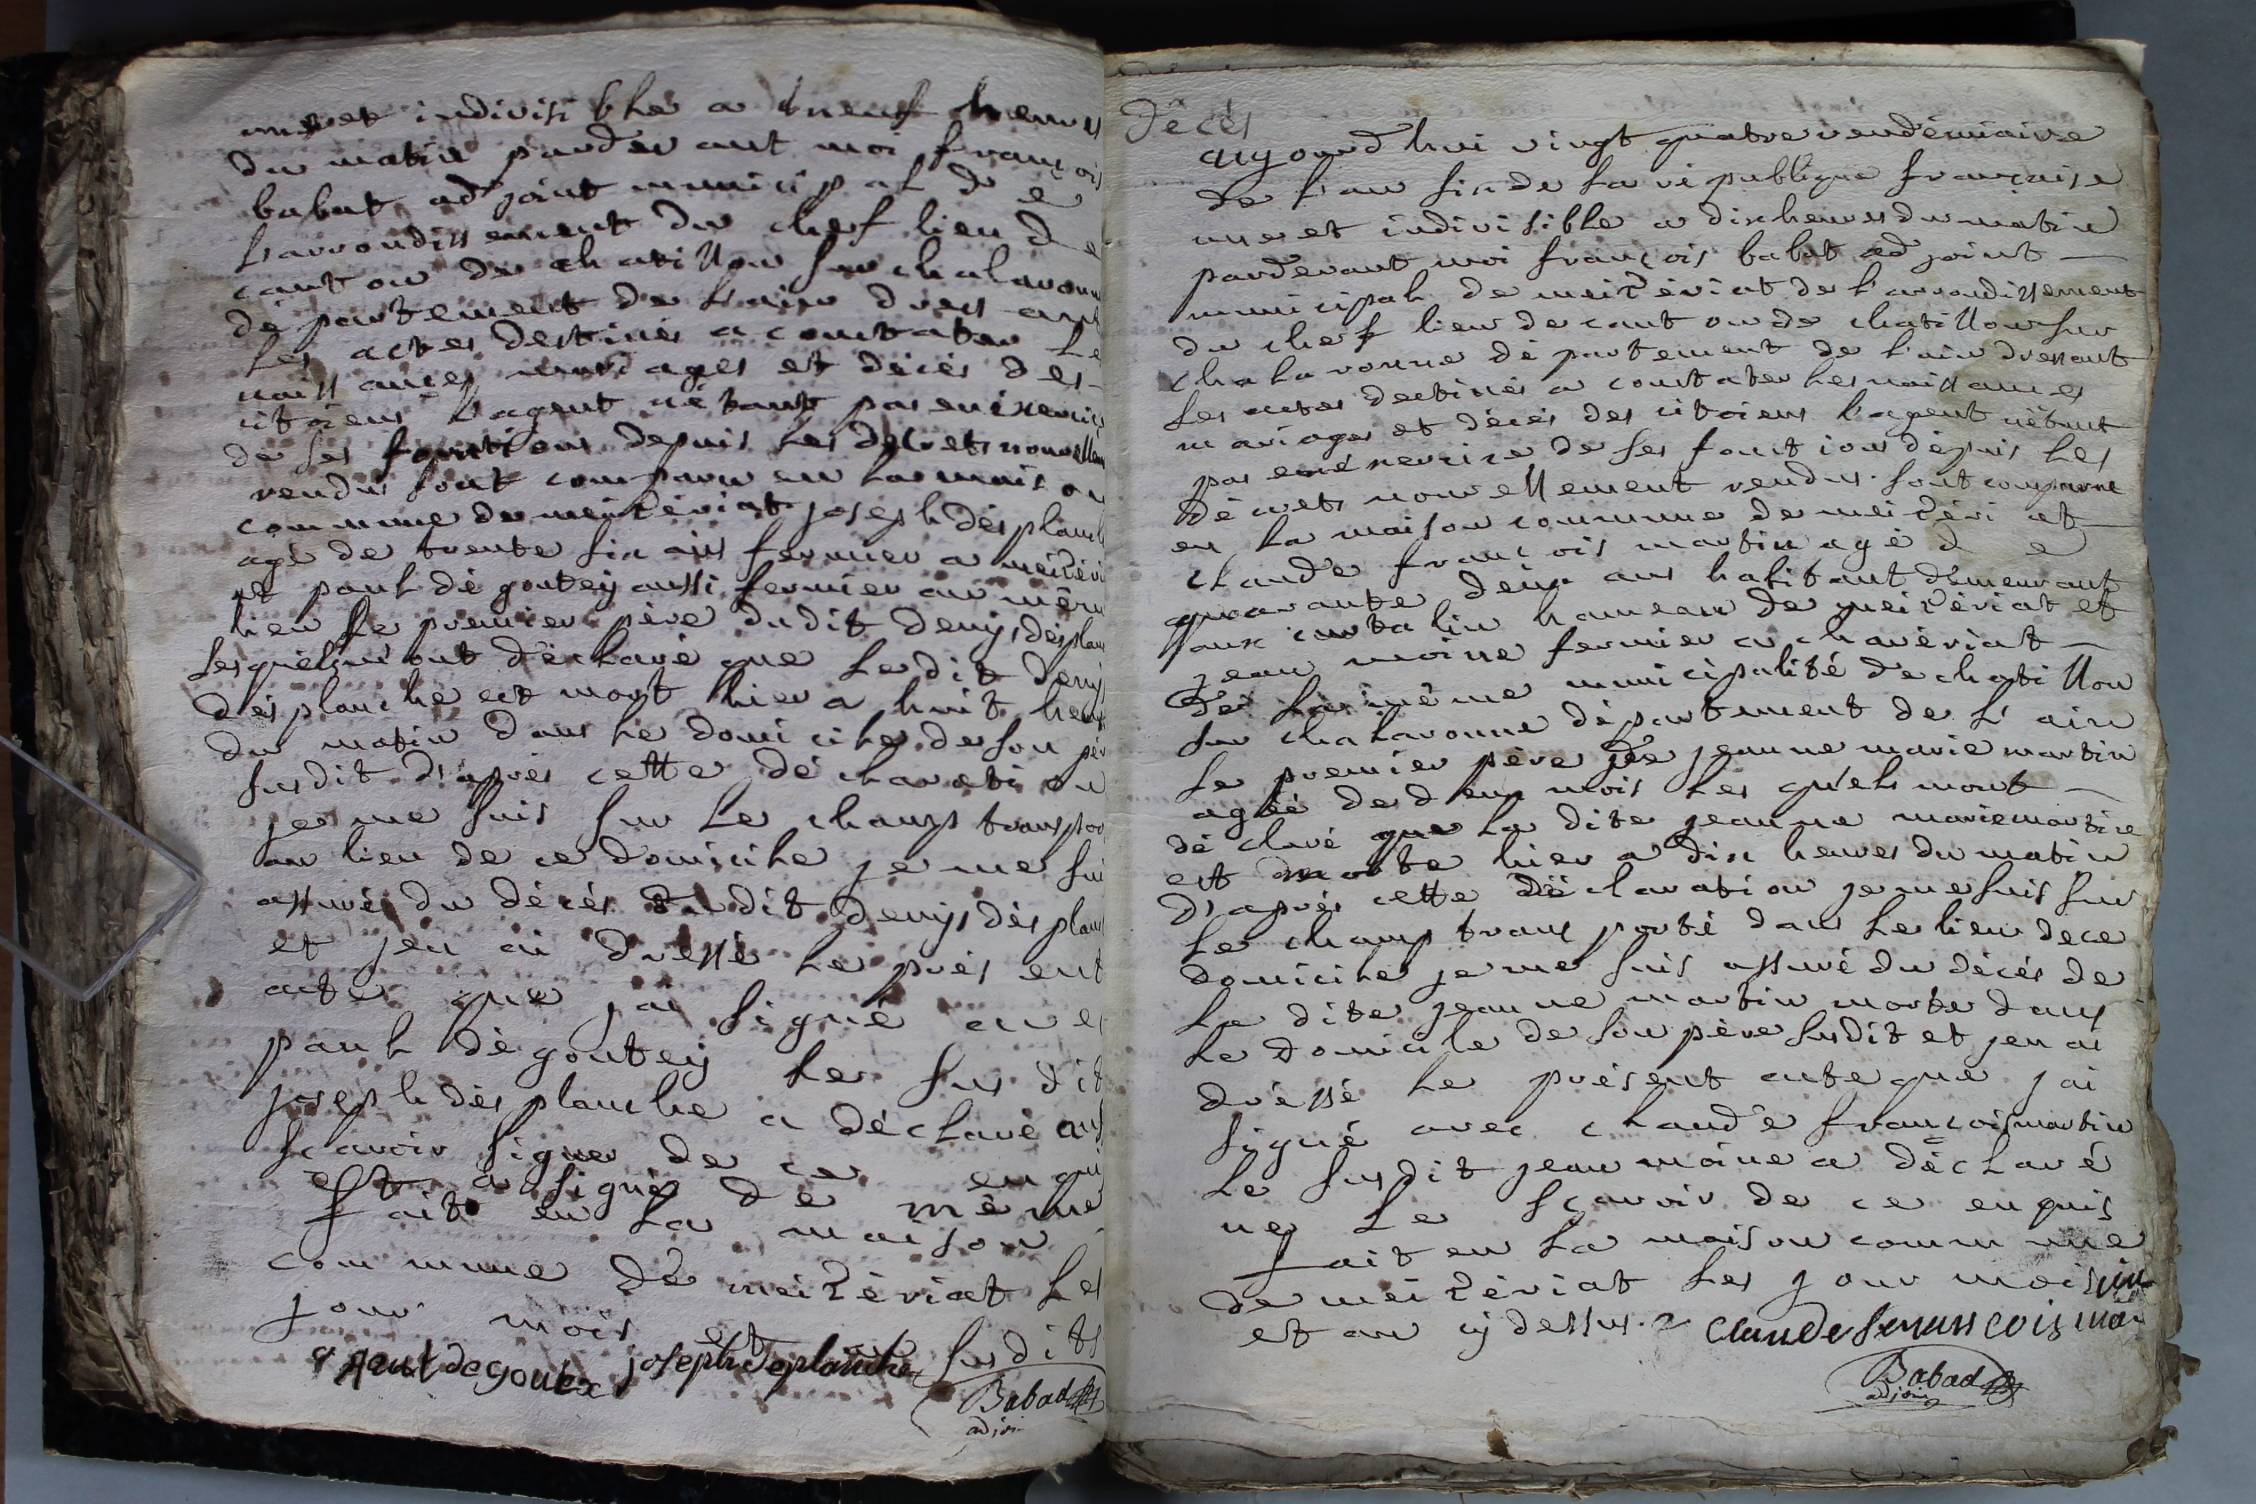 une et indivisi ble a neuf heures
du matin pardevant moi françois
babat adjoint municipal de
l'arrondissement du chef lieu de
canton de chatillon sur chalaronne
département de l'ain dressant
les actes destinés a constater le
naissances mariages et décés des
citoiens l'agent nétant pas en exercice
de ses fonctions depuis les décrets nouvellem
rendus sont comparu en la maison
commune de meizériat joseph désplanch
agé de trente six ans fermier a meizéri
et paul dégoutey aussi fermier au mêm
lieu le premier père dudit denys désplan
lesquels m'ont déclaré que ledit denys
désplanche est mort hier a huit heur
du matin dans le domicile de son pèr
susdit d'après cette déclaration
je me suis sur le champ transpor
au lieu de ce domicile je me sui
assuré du décés dudit denys désplan
et jen ai dressé le présent
acte que jai signé avec
paul dégoutey le susdit
joseph désplanche a déclaré aus
scavoir signer de ce enquis
et a signé de même
fait en la maison
commune de meizériat les
jour mois et an susdits
paul degoutex joseph deplanche
Babad
adjoin
Décés
aujourd'hui vingt quatre vendémiaire
de l'an six de la république française
une et indivisible a dix heures du matin
pardevant moi françois babat adjoint
municipal de meizériat de l'arrondissement
du chef lieu de canton de chatillon sur
chalaronne département de l'ain dressant
les actes destinés a constater les naissances
mariages et décés des citoiens l'agent nétant
pas en éxercice de ses fonctions dépuis les
décrets nouvellement rendus sont comparu
en la maison commune de meizériat
claude françois martin agé de
quarante deux ans habitant démeurant
aux curtalin hameau de meizériat et
jean moine fermier a chavériat
de la même municipalité de chatillon
sur chalaronne département de l'ain
le premier père de jeanne marie martin
agée de deux mois les quels mont
déclaré que la dite jeanne marie martin
est morte hier a dix heures du matin
d'après cette déclaration je me suis sur
le champ transporté dans le lieu de ce
domicile je me suis assuré du décés de
la dite jeanne martin morte dans
le domicile de son père susdit et jen ai
dréssé le présent acte que jai
signé avec claude françois martin
le susdit jean moine a déclaré
ne le scavoir de ce enquis
fait en la maison commune
de meizériat les jour mois
et an cy dessus. claude franscois mar
Babad
adjoin